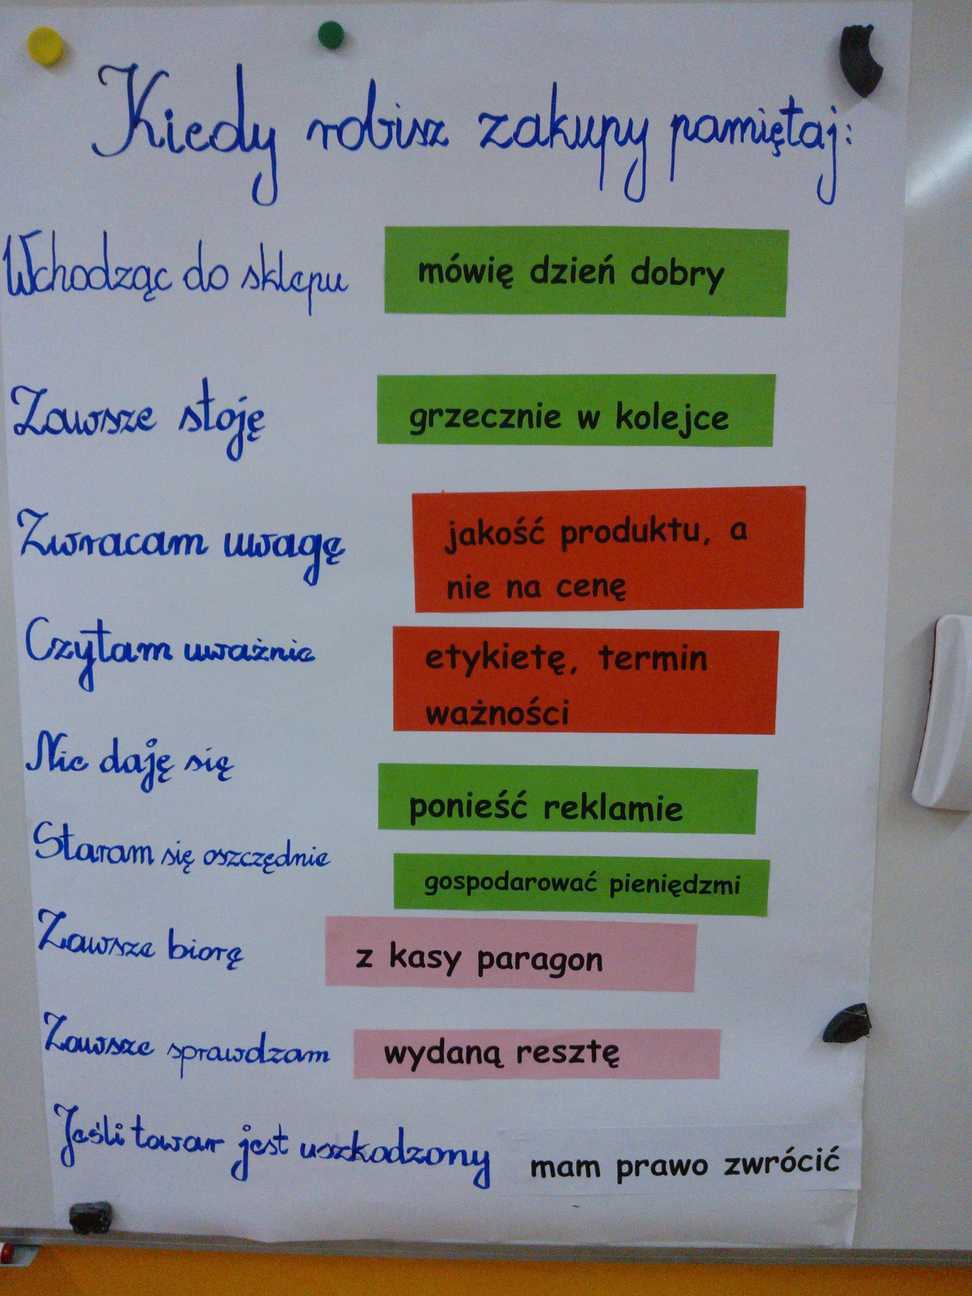 Kiedy robisz zakupy pamiętaj:
Wchodząc do sklepu mówię dzień dobry
Zawsze stoję grzecznie w kolejce
Zwracam uwagę jakość produktu, a
nie na cenę
Czytam uważnie etykietę, termin
ważności
Nie daję się ponieść reklamie
Staram się oszczędnie gospodarować pieniędzmi
Zawsze biorę z kasy paragon
Zawsze sprawdzam wydaną resztę
Jeśli towar jest uszkodzony mam prawo zwrócić